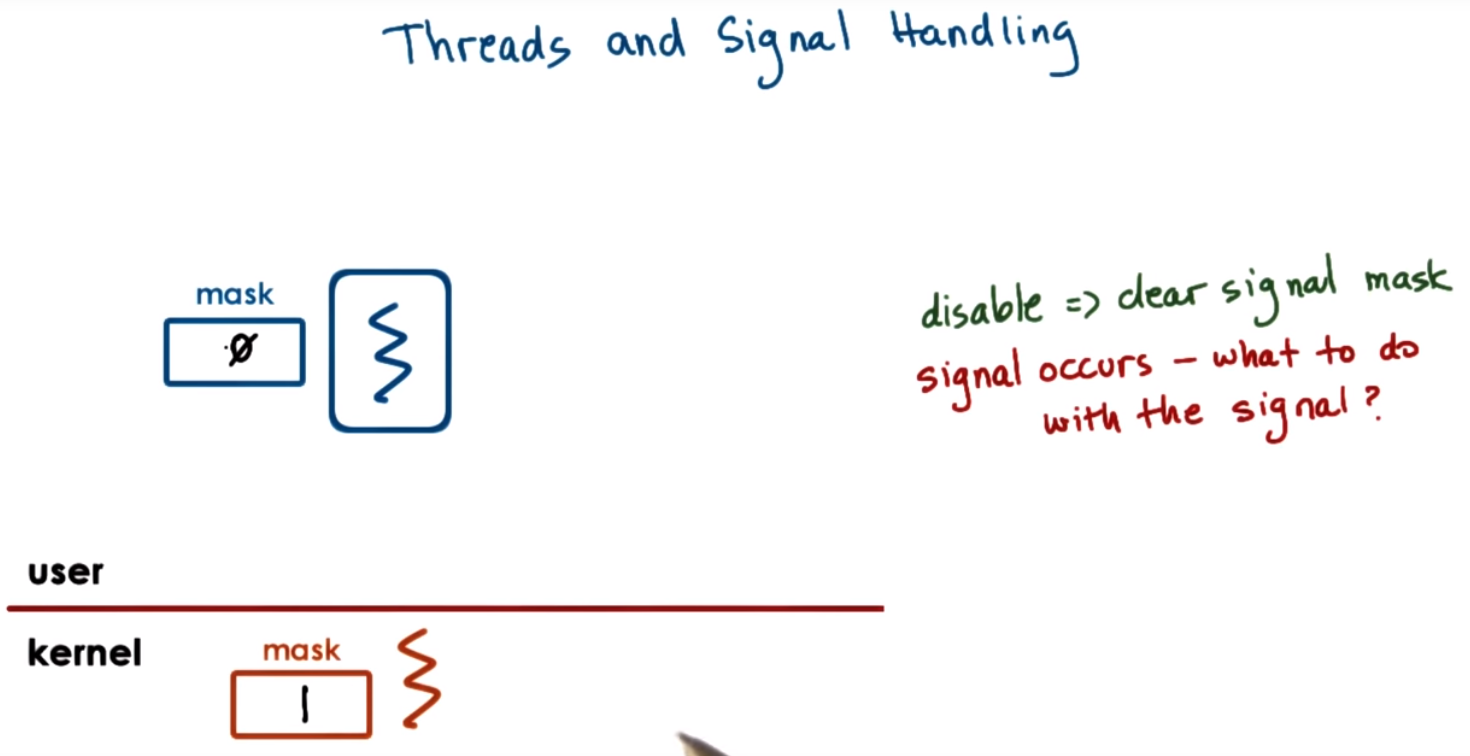 Threads and Signal Handling
mask
0
disable => clear signal mask
signal occurs - what to do
with the signal?
user
kernel
mask
1